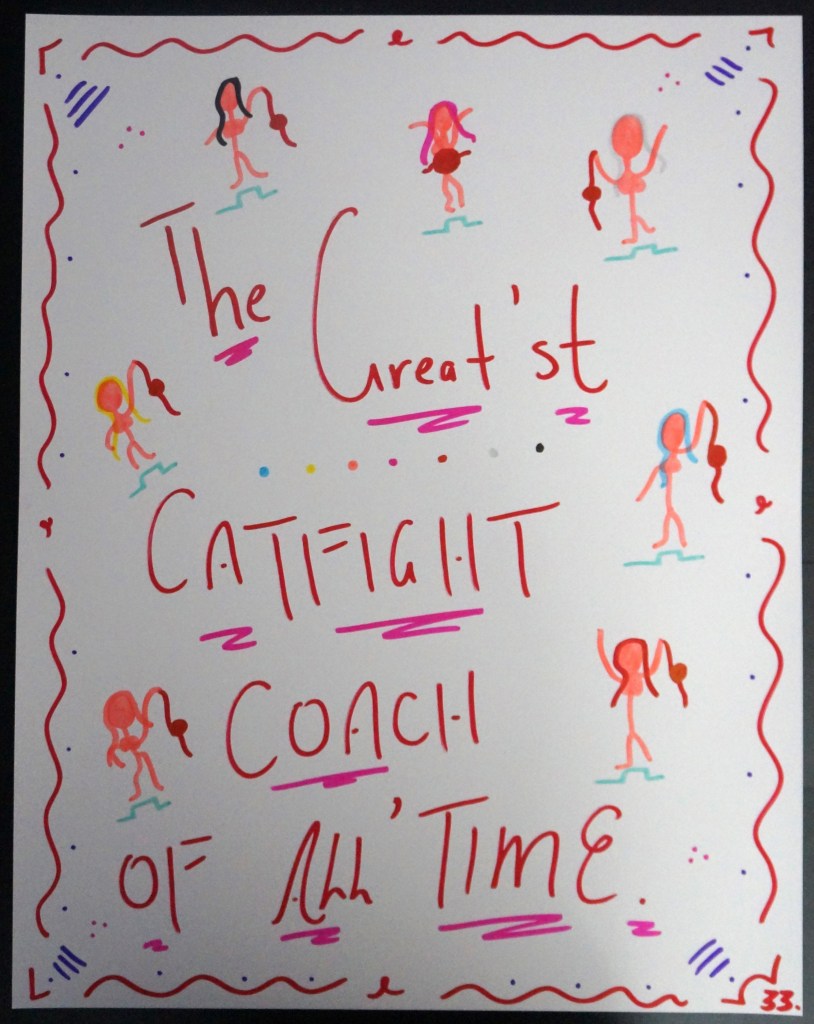 The
Great'st
CATFIGHT
COACH
OF All' TIME.
33.